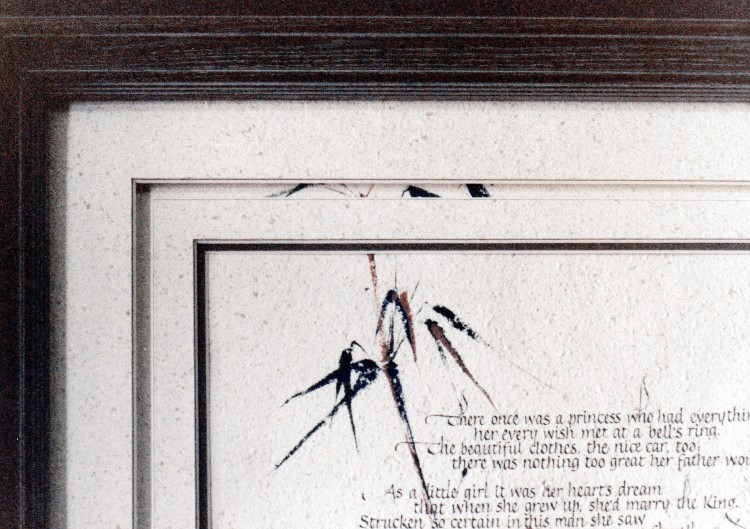 There once was a princess who had everythin
her every wish met at a bell's ring.
The beautiful clothes, the nice car, too;
there was nothing too great her father wou
As a little girl it was her heart's dream
that when she grew up, she'd marry the King.
Strucken so certain in this man she saw